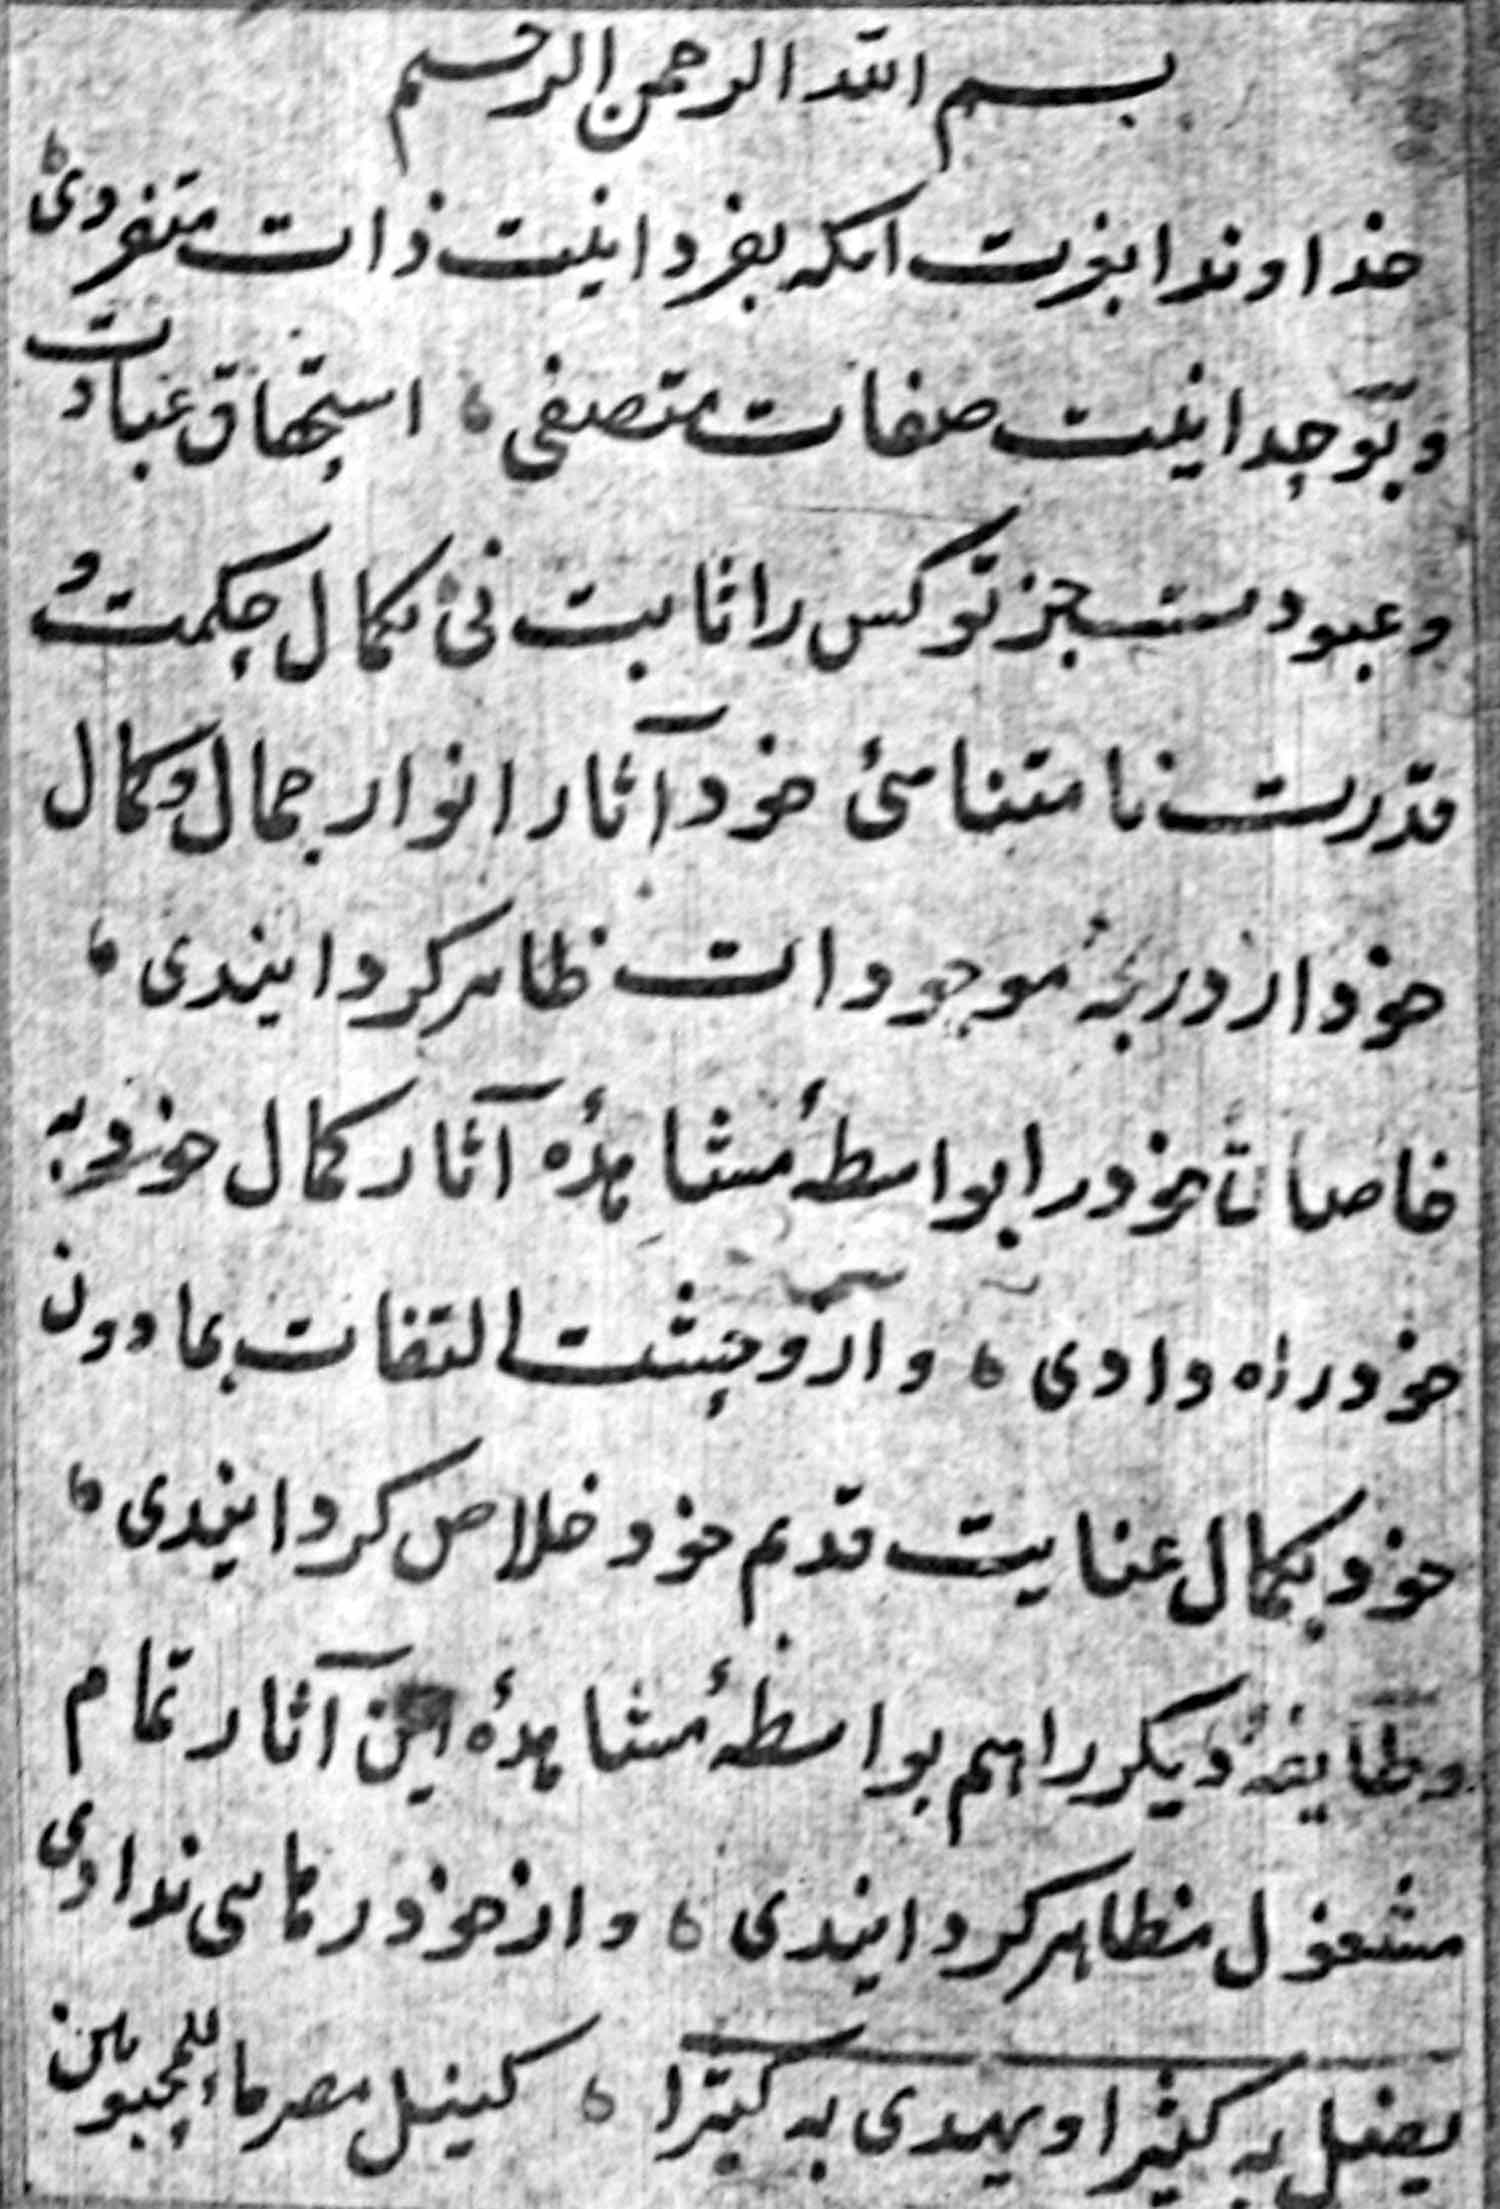 بسم الله الرحمن الرحیم
خداوندا بعزت انکه بفردانیت ذات متفردی
و بوحدانیت صفات متصفی ، استحقاق عبادت
و عبودیت جز تو کس را ثابت نی بکمال حکمت و
قدرت نامتناهئ خود آثار انوار جمال و کمال
خود از ذره موجودات ظاهر کردانیدی ،
خاصان خود را بواسطهٔ مشاهدهٔ آثار کمال خود به
خود راه دادی ، و از وحشت التفات بمادون
خود بکمال عنایت قدیم خود خلاص کردانیدی ،
و طایفهٔ دیکر را هم بواسطهٔ مشاهدهٔ این آثار تمام
مشغول مظاهر کردانیدی ، و از خود در کاسی ندادی
یضل به کثیرا و یهدی به کثیرا ، کنیل مصر ماء للمحبوبین